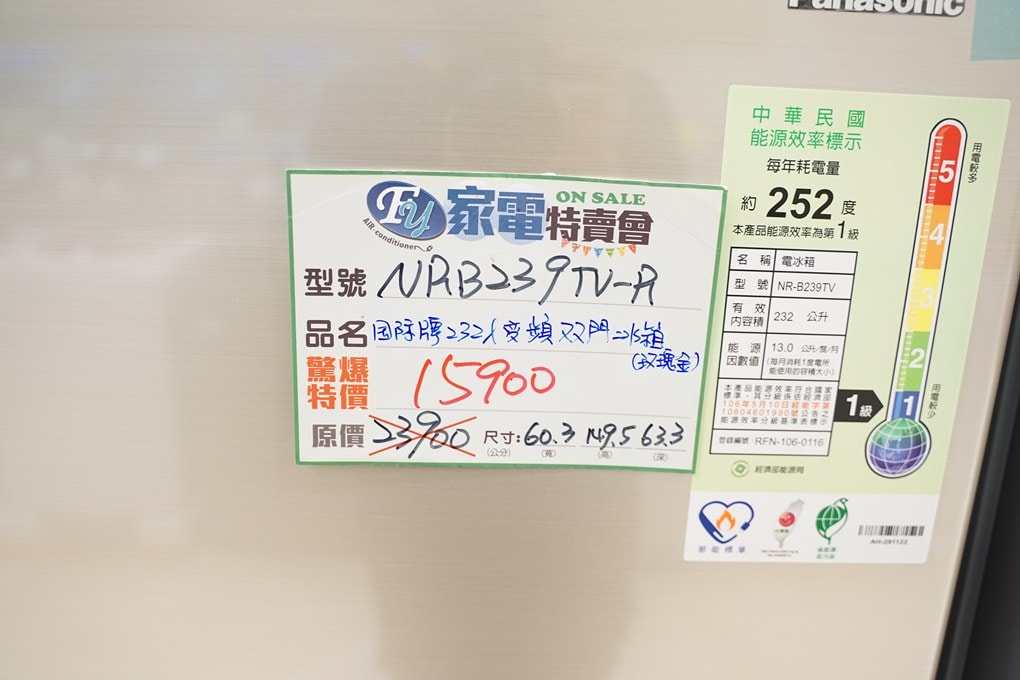 Panasonic
FY
AIR conditioner
家電特賣會
ON SALE
型號 NRB239TV-R
品名 国际牌232L变頻双門冰箱
(玫瑰金)
驚爆特價 15900
原價 23900
尺寸: 60.3 149.5 63.3
(公分) (寬) (高) (深)
中華民國
能源效率標示
每年耗電量
約 252 度
本產品能源效率為第1級
名稱 電冰箱
型號 NR-B239TV
有效內容積 232 公升
能源因數值 13.0 公升/度/月
(每月消耗1度電所
能使用的容積大小)
本產品能源效率符合國家
標準，其分級係依經濟部
106年5月10日經能字第
10604601990號公告之
能源效率分級基準表標示
登錄編號 RFN-106-0116
經濟部能源局
用電較多
5
4
3
2
1
用電較少
1級
節能標章
AH-291122